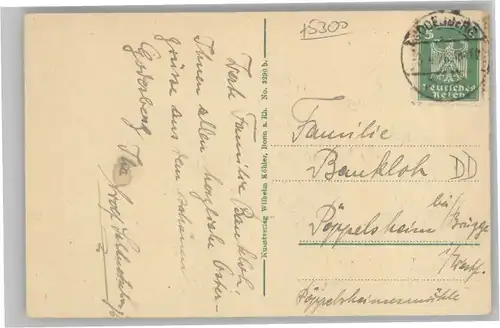 15300
GODESBERG
5
Deutsches
Reich
Werte Familie Bankloh.
Ihnen allen herzliche Oster-
grüsse aus dem schönen
Godesberg Ihr
Kunstverlag Wilhelm Köhler, Bonn a. Rh. No. 3290 b.
Familie
Bankloh
DD
Pöppelsheim
bei Brügge
i/Westf.
Pöppelsheimermühle